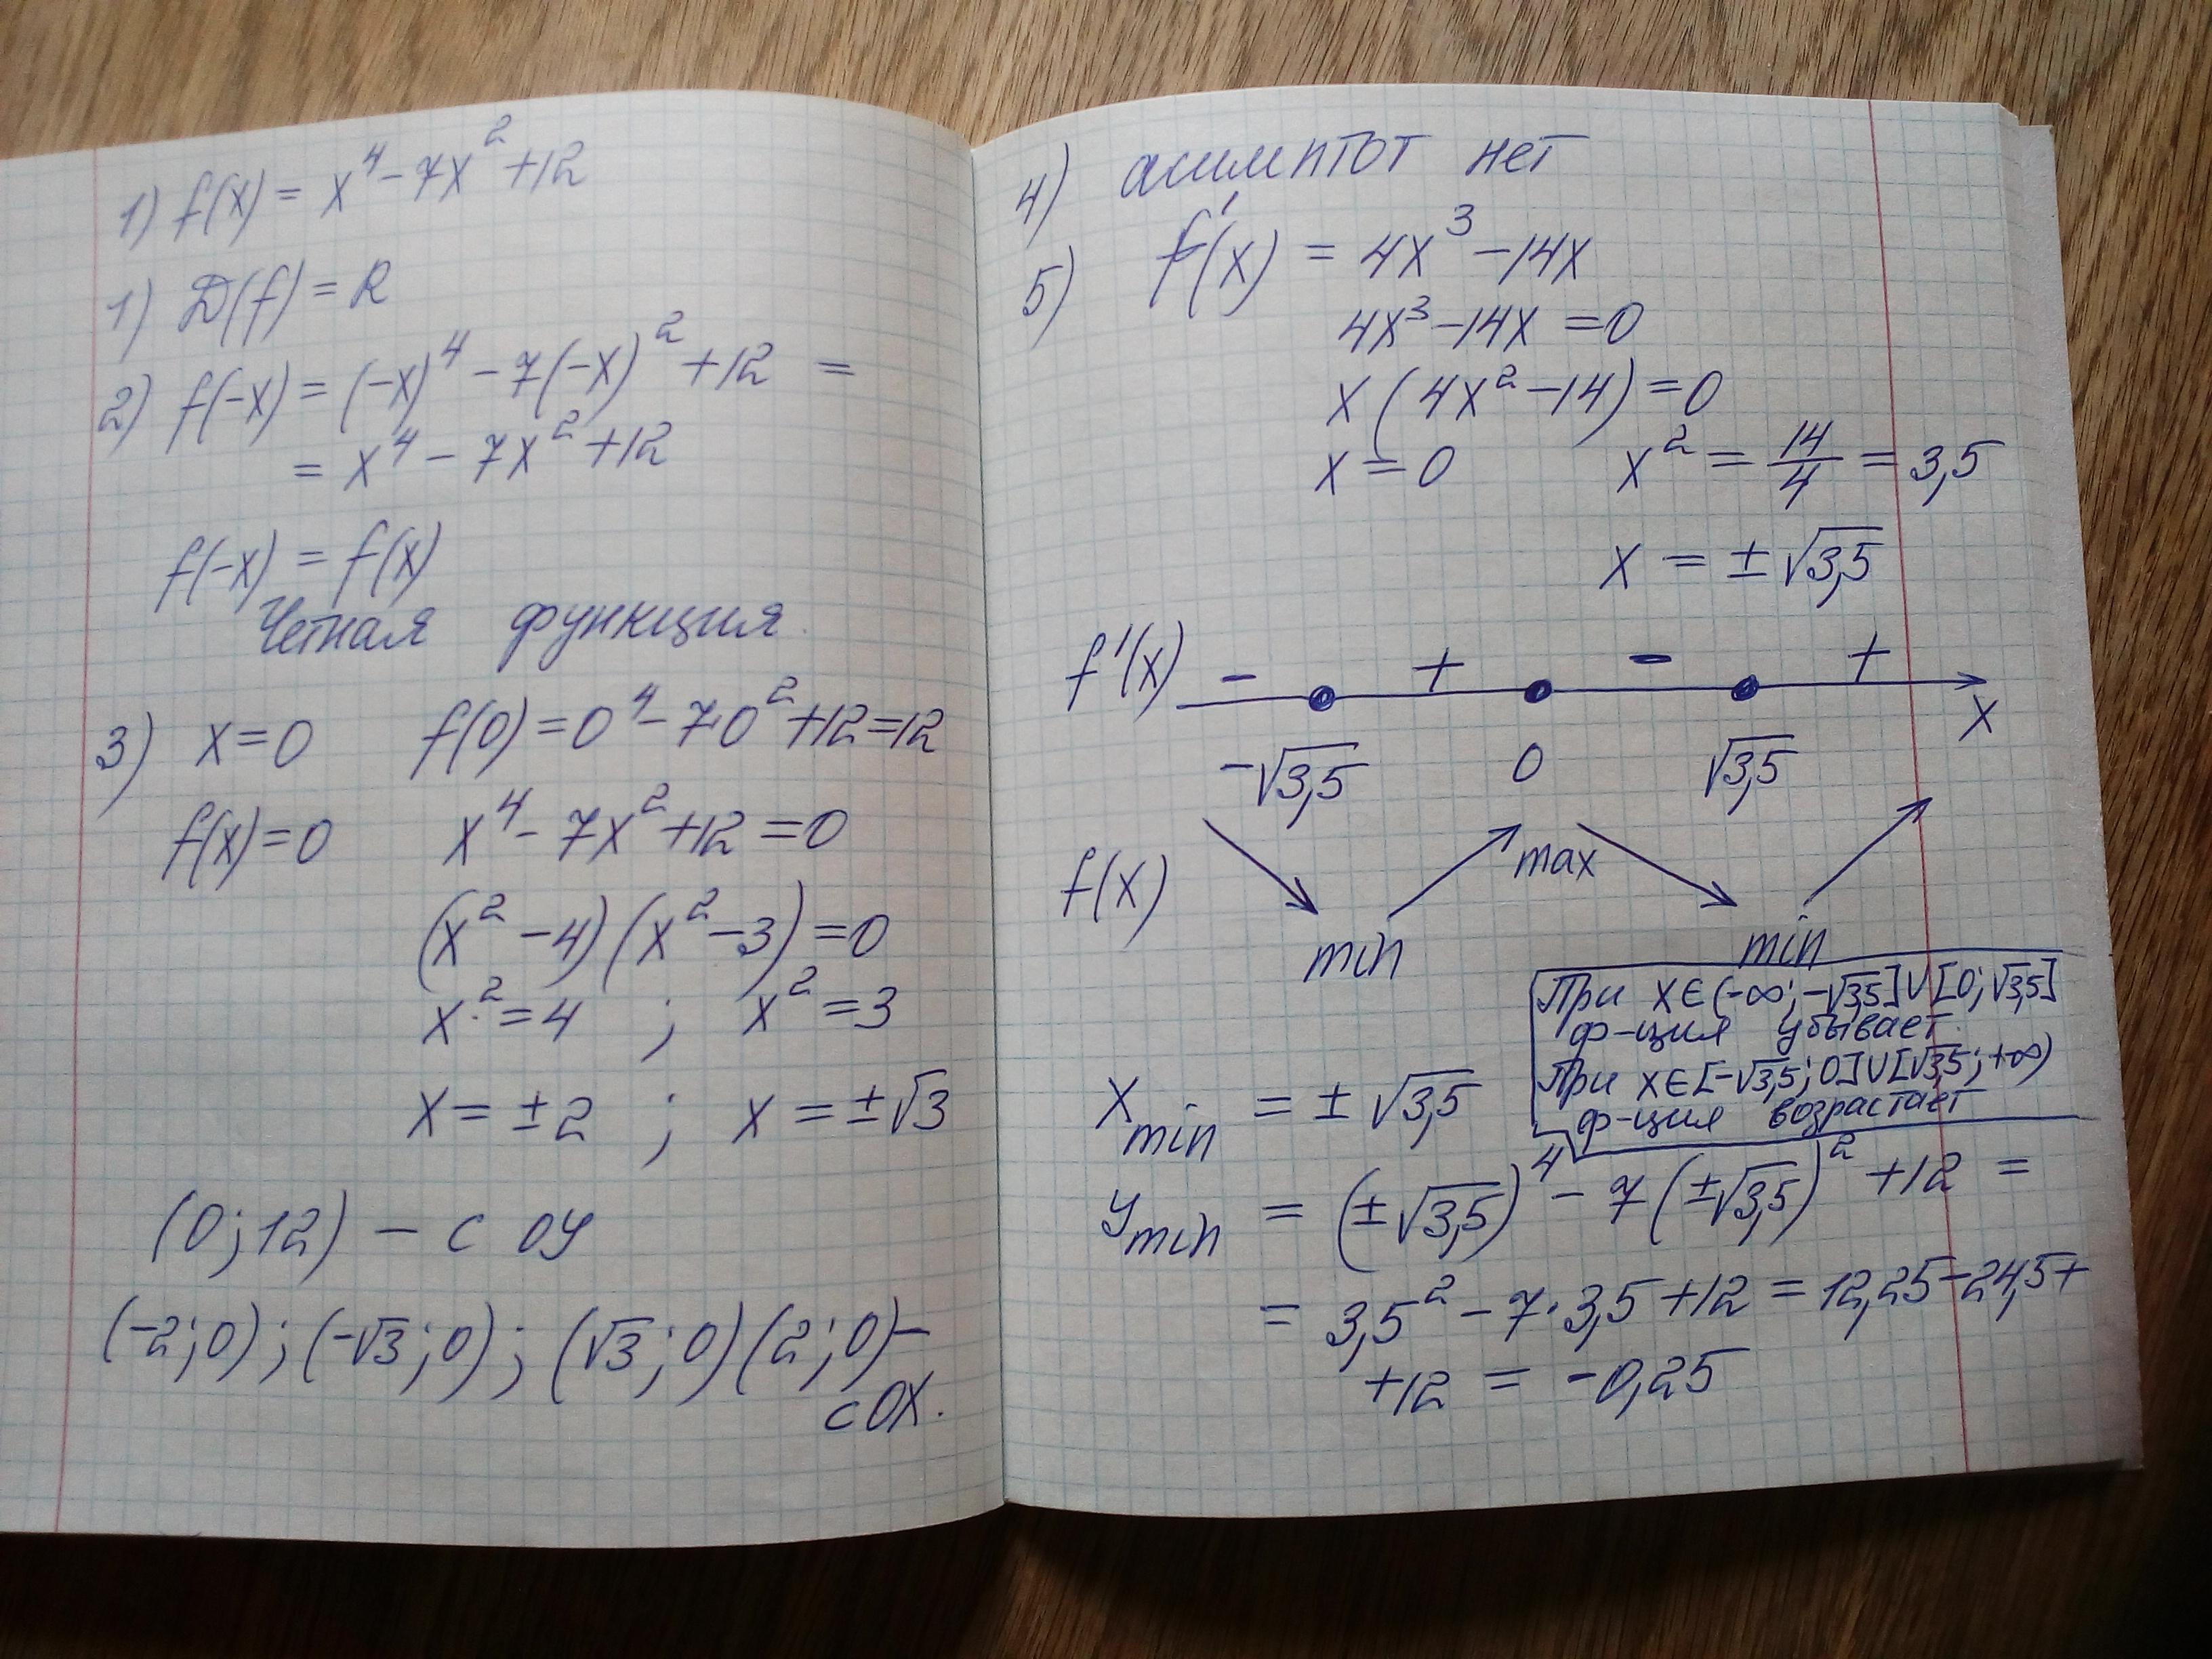 1) f(x) = x⁴ - 7x² + 12
1) D(f) = R
2) f(-x) = (-x)⁴ - 7(-x)² + 12 =
= x⁴ - 7x² + 12
f(-x) = f(x)
Четная функция.
3) x=0 f(0) = 0⁴ - 7·0² + 12 = 12
f(x)=0 x⁴ - 7x² + 12 = 0
(x² - 4)(x² - 3) = 0
x² = 4 ; x² = 3
x = ±2 ; x = ±√3
(0; 12) - с ОУ
(-2; 0); (-√3; 0); (√3; 0) (2; 0) -
с ОХ.
4) асимптот нет
5) f'(x) = 4x³ - 14x
4x³ - 14x = 0
x (4x² - 14) = 0
x = 0 x² = 14/4 = 3,5
x = ±√3,5
f'(x) - + - + x
-√3,5 0 √3,5
f(x) min max min
При x∈(-∞; -√3,5]∪[0; √3,5]
ф-ция убывает.
При x∈[-√3,5; 0]∪[√3,5; +∞)
ф-ция возрастает
x min = ±√3,5
y min = (±√3,5)⁴ - 7(±√3,5)² + 12 =
= 3,5² - 7·3,5 + 12 = 12,25 - 24,5 +
+12 = -0,25